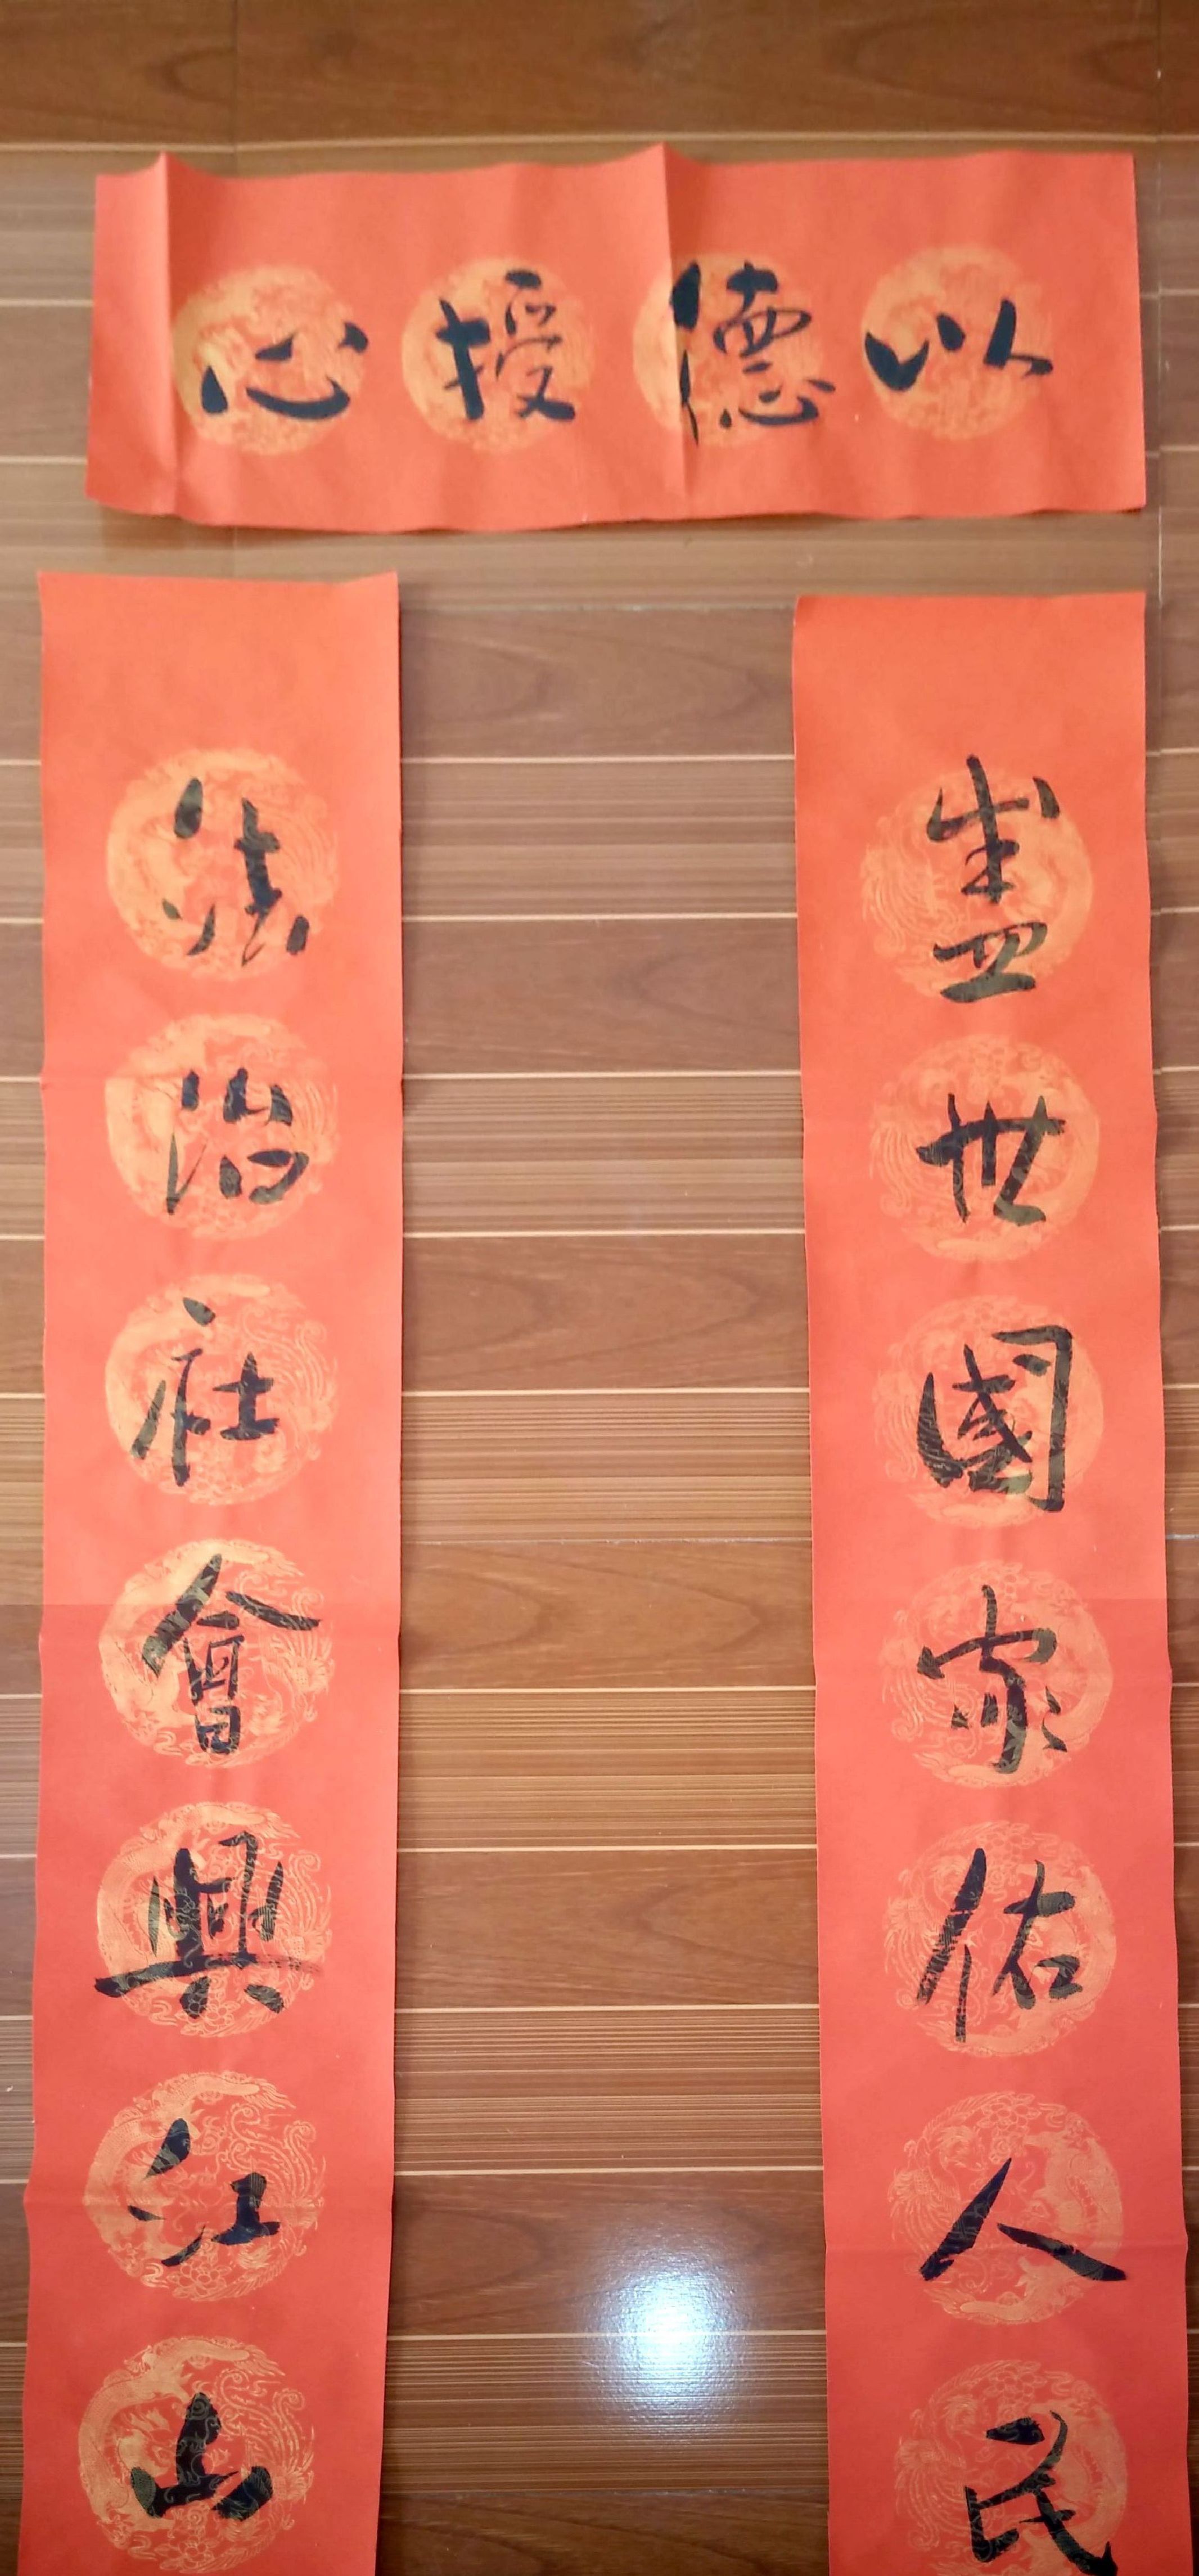 以德授心
盛世國家佑人民
法治社會興江山